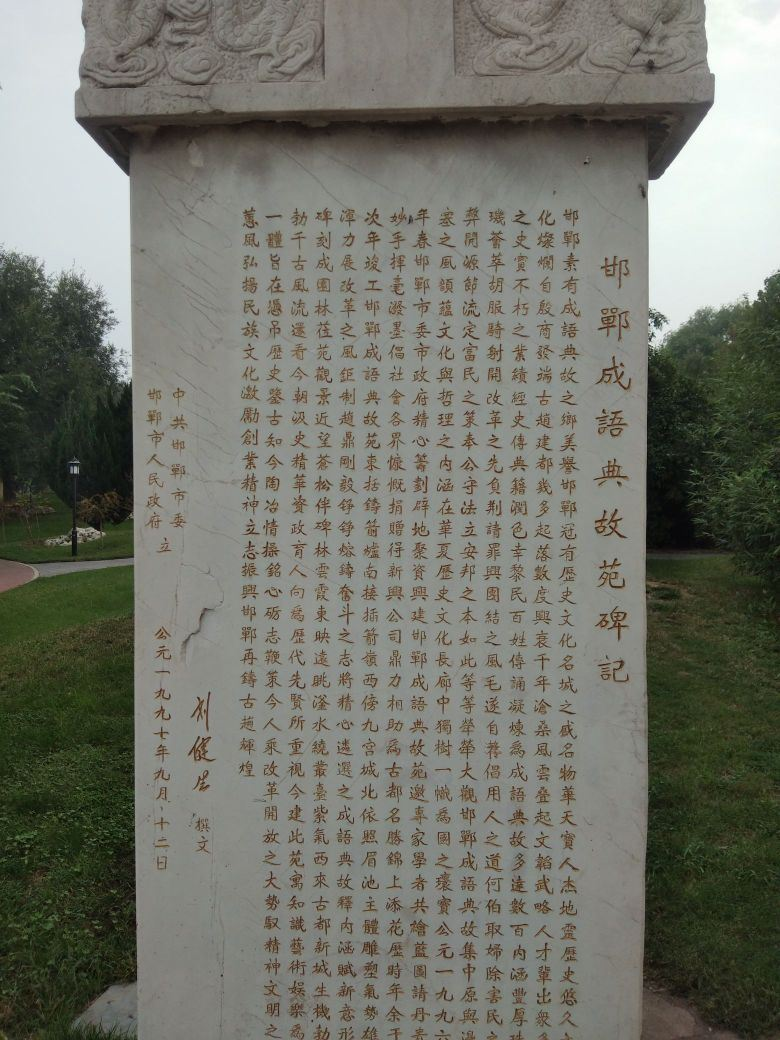 邯鄲成語典故苑碑記
邯鄲素有成語典故之鄉美譽邯鄲冠有歷史文化名城之盛名物華天寶人杰地靈歷史悠久
化燦爛自殷商發端古趙建都幾多起落數度興衰千年滄桑風雲叠起文韜武略人才輩出衆多
之史實不朽之業績經史傳典籍潤色幸黎民百姓傳誦凝煉爲成語典故多達數百內涵豐厚珠
璣薈萃胡服騎射開改革之先負荆請罪興團結之風毛遂自薦倡用人之道何伯取婦除害民之
弊開源節流定富民之策奉公守法立安邦之本如此等等犖犖大觀邯鄲成語典故集中原與邊
塞之風領蘊文化與哲理之內涵在華夏歷史文化長廊中獨樹一幟爲國之瓌寶公元一九九六
年春邯鄲市委市政府精心籌劃辟地聚資興建邯鄲成語典故苑邀專家學者共繪藍圖請丹青
妙手揮毫潑墨倡社會各界慷慨捐贈得新興公司鼎力相助爲古都名勝錦上添花歷時年余于
次年竣工邯鄲成語典故苑東括鑄箭爐南接插箭嶺西傍九宮城北依照眉池主體雕塑氣勢雄
渾力展改革之風鉅制趙鼎剛毅錚錚熔鑄奮斗之志將精心遴選之成語典故釋內涵賦新意形
碑刻成園林莅苑觀景近望蒼松伴碑林雲霞東映遠眺滏水繞叢臺紫氣西來古都新城生機勃
勃千古風流還看今朝汲史精華資政育人向爲歷代先賢所重視今建此苑寓知識藝術娛樂爲
一體旨在憑吊歷史鑒古知今陶冶情操銘心砺志鞭策今人乘改革開放之大勢馭精神文明之
蕙風弘揚民族文化激勵創業精神立志振興邯鄲再鑄古趙輝煌
劉健生 撰文
中共邯鄲市委
邯鄲市人民政府 立
公元一九九七年九月十二日